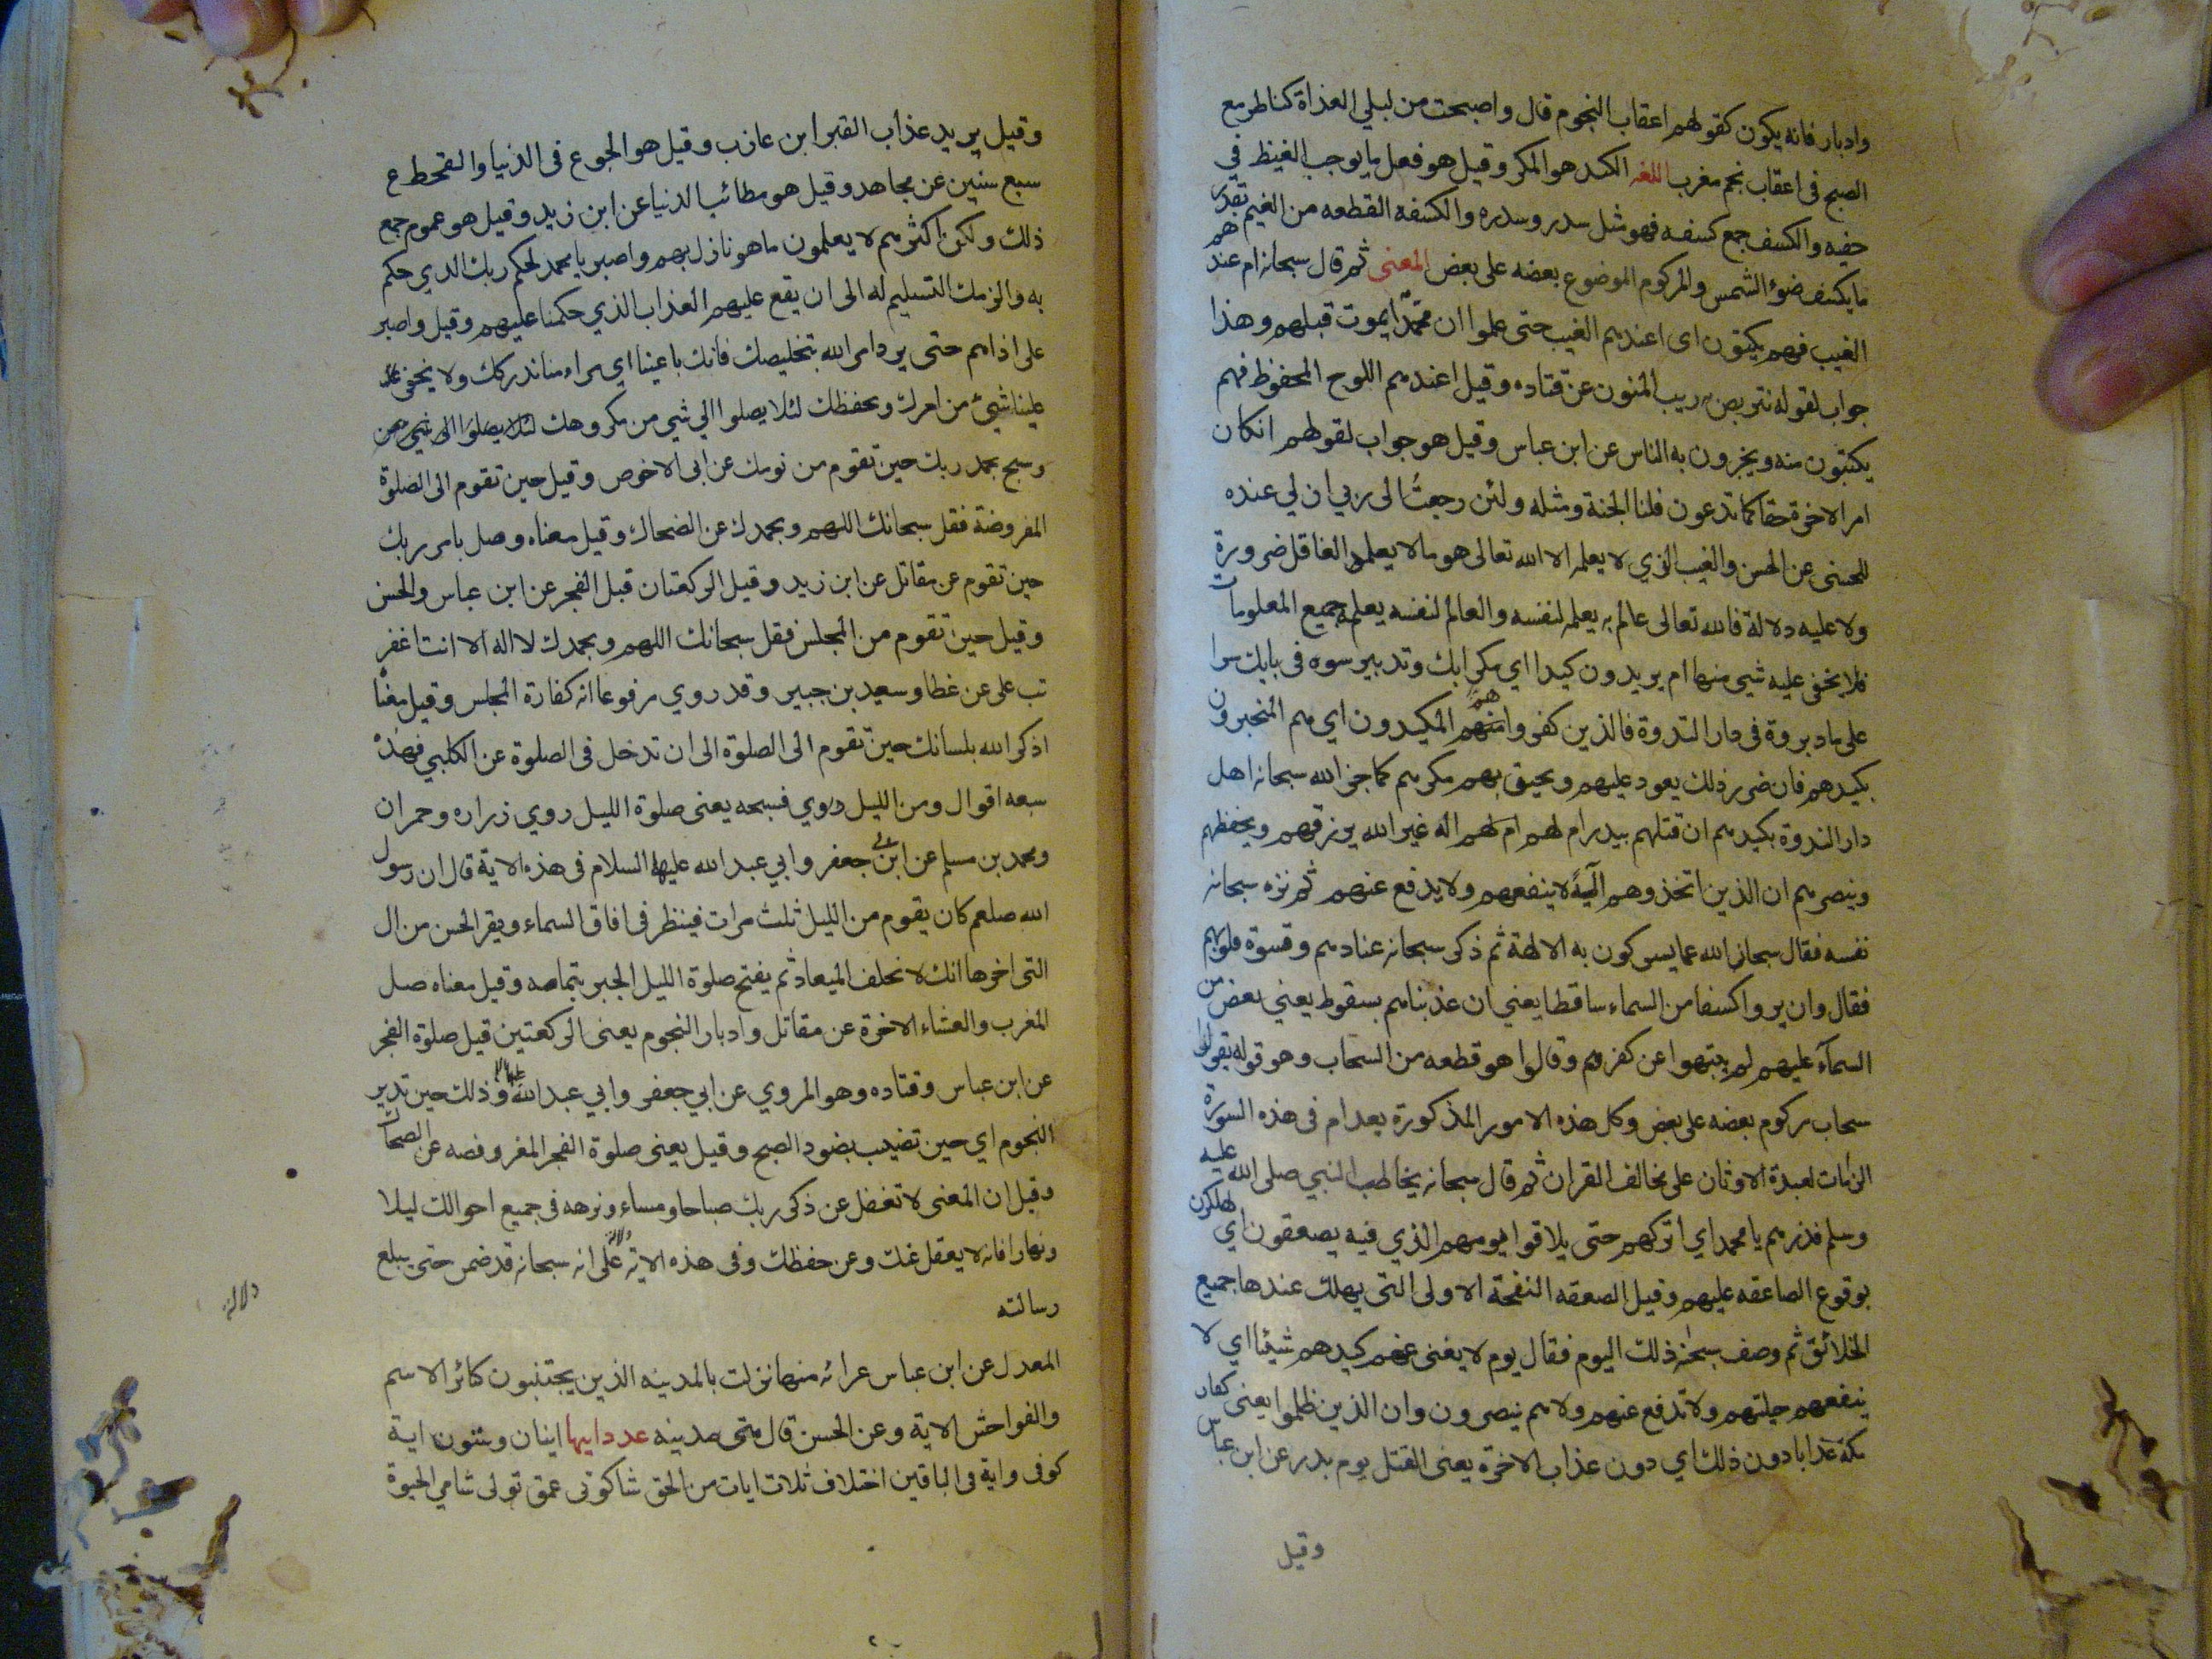 وادبار فانه يكون كقولهم اعقاب النجوم قال واصبحت من ليلي الغداة كناطر مع
الصبح فى اعقاب نجم مغرب اللغه الكيد هو المكر وقيل هو فعل ما يوجب الغيظ في
خفيه والكسف جمع كسفه فهو مثل سدر وسدره والكسفه القطعه من الغيم بقدر
ما يكسف ضوء الشمس والمركوم الموضوع بعضه على بعض المعنى ثم قال سبحانه ام عندهم
الغيب فهم يكتبون اى اعندهم الغيب حتى علموا ان محمدا يموت قبلهم وهذا
جواب لقوله نتربص به ريب المنون عن قتاده وقيل اعندهم اللوح المحفوظ فهم
يكتبون منه ويخبرون به الناس عن ابن عباس وقيل هو جواب لقولهم ان كان
امر الاخرة حقا كما تدعون فلنا الجنة ومثله ولئن رجعت الى ربي ان لي عنده
للحسنى عن الحسن والغيب الذي لا يعلمه الا الله تعالى هو ما لا يعلمه العاقل ضرورة
ولا عليه دلالة فالله تعالى عالم به يعلمه لنفسه والعالم لنفسه يعلم جميع المعلومات
فلا يخفى عليه شيى منها ام يريدون كيدا اي مكرا بك وتدبير سوء فى بابك سرا
على ما دبروة فى دار الندوة فالذين كفروا هم المكيدون اي هم المجزيون
بكيدهم فان ضرر ذلك يعود عليهم ويحيق بهم مكرهم كما جزى الله سبحانه اهل
دار الندوة بكيدهم ان قتلهم ببدر ام لهم ام لهم اله غير الله يرزقهم ويحفظهم
وينصرهم ان الذين اتخذوهم الهة لا ينفعهم ولا يدفع عنهم ثم نزه سبحانه
نفسه فقال سبحان الله عما يشركون به الالهة ثم ذكر سبحانه عنادهم وقسوة قلوبهم
فقال وان يروا كسفا من السماء ساقطا يعني ان عذبناهم بسقوط يعني بعض من
السمآء عليهم لم ينتهوا عن كفرهم وقالوا هو قطعه من السحاب وهو قوله يقولوا
سحاب مركوم بعضه على بعض وكل هذه الامور المذكورة بعد ام فى هذه السورة
الزامات لعبدة الاوثان على مخالف القران ثم قال سبحانه يخاطب النبي صلى الله عليه
وسلم فذرهم يا محمد اي اتركهم حتى يلاقوا يومهم الذي فيه يصعقون اي يهلكون
بوقوع الصاعقه عليهم وقيل الصعقه النفخة الاولى التى يهلك عندها جميع
الخلائق ثم وصف سبحنه ذلك اليوم فقال يوم لا يغنى عنهم كيدهم شيئا اي لا
ينفعهم حيلتهم ولا تدفع عنهم ولا هم ينصرون وان الذين ظلموا يعنى كفار
مكة عذابا دون ذلك اي دون عذاب الاخرة يعنى القتل يوم بدر عن ابن عباس
وقيل
وقيل يريد عذاب القبر ابن عازب وقيل هو الجوع فى الدنيا والقحط ع
سبع سنين عن مجاهد وقيل هو مصائب الدنيا عن ابن زيد وقيل هو عموم جمع
ذلك ولكن اكثرهم لا يعلمون ما هو نازل بهم واصبر يا محمد لحكم ربك الذي حكم
به والزمك التسليم له الى ان يقع عليهم العذاب الذي حكمنا عليهم وقيل واصبر
على اذاهم حتى يرد امر الله بتخليصك فانك باعيننا اي مراء منا ندركك ولا يخفى
علينا شيئ من امرك ونحفظك لئلا يصلوا الي شيى من مكروهك لئلا يصلوا الى شيى من
وسبح بحمد ربك حين تقوم من نومك عن ابى الاخوص وقيل حين تقوم الى الصلوة
المفروضة فقل سبحانك اللهم وبحمدك عن الضحاك وقيل معناه وصل بامر ربك
حين تقوم عن مقاتل عن ابن زيد وقيل الركعتان قبل الفجر عن ابن عباس والحسن
وقيل حين تقوم من المجلس فقل سبحانك اللهم وبحمدك لا اله الا انت اغفر
تب على عن عطا وسعيد بن جبير وقد روي مرفوعا انه كفارة المجلس وقيل معنا
اذكر الله بلسانك حين تقوم الى الصلوة الى ان تدخل فى الصلوة عن الكلبي فهذه
سبعه اقوال ومن الليل فسبحه يعنى صلوة الليل روي زراره وحمران
ومحمد بن مسلم عن ابي جعفر وابي عبد الله عليهما السلام فى هذه الاية قال ان رسول
الله صلعم كان يقوم من الليل ثلث مرات فينظر فى افاق السماء ويقر الخمس من ال
التى اخرها انك لا تخلف الميعاد ثم يفتح صلوة الليل الخبر بتمامه وقيل معناه صل
المغرب والعشاء الاخرة عن مقاتل وادبار النجوم يعنى الركعتين قبل صلوة الفجر
عن ابن عباس وقتاده وهو المروي عن ابي جعفر وابي عبد الله وذلك حين تدبر
النجوم اي حين تغيب بضوء الصبح وقيل يعنى صلوة الفجر المفروضه عن الضحاك
وقيل ان المعنى لا تغفل عن ذكر ربك صباحا ومساء ونزهه فى جميع احوالك ليلا
ونهارا فانه لا يغفل عنك وعن حفظك وفى هذه الاية دلالة على انه سبحانه قد ضمن حتى يبلغ
دلالة
رسالته
المعدل عن ابن عباس منها نزلت بالمدينه الذين يجتنبون كبائر الاسم
والفواحش الاية وعن الحسن قال هى مدنيه عدد ايها اثنان وستون اية
كوفى واية فى الباقين اختلاف ثلاث ايات من الحق شيا كوفى عمن تولى شامي الحيوة